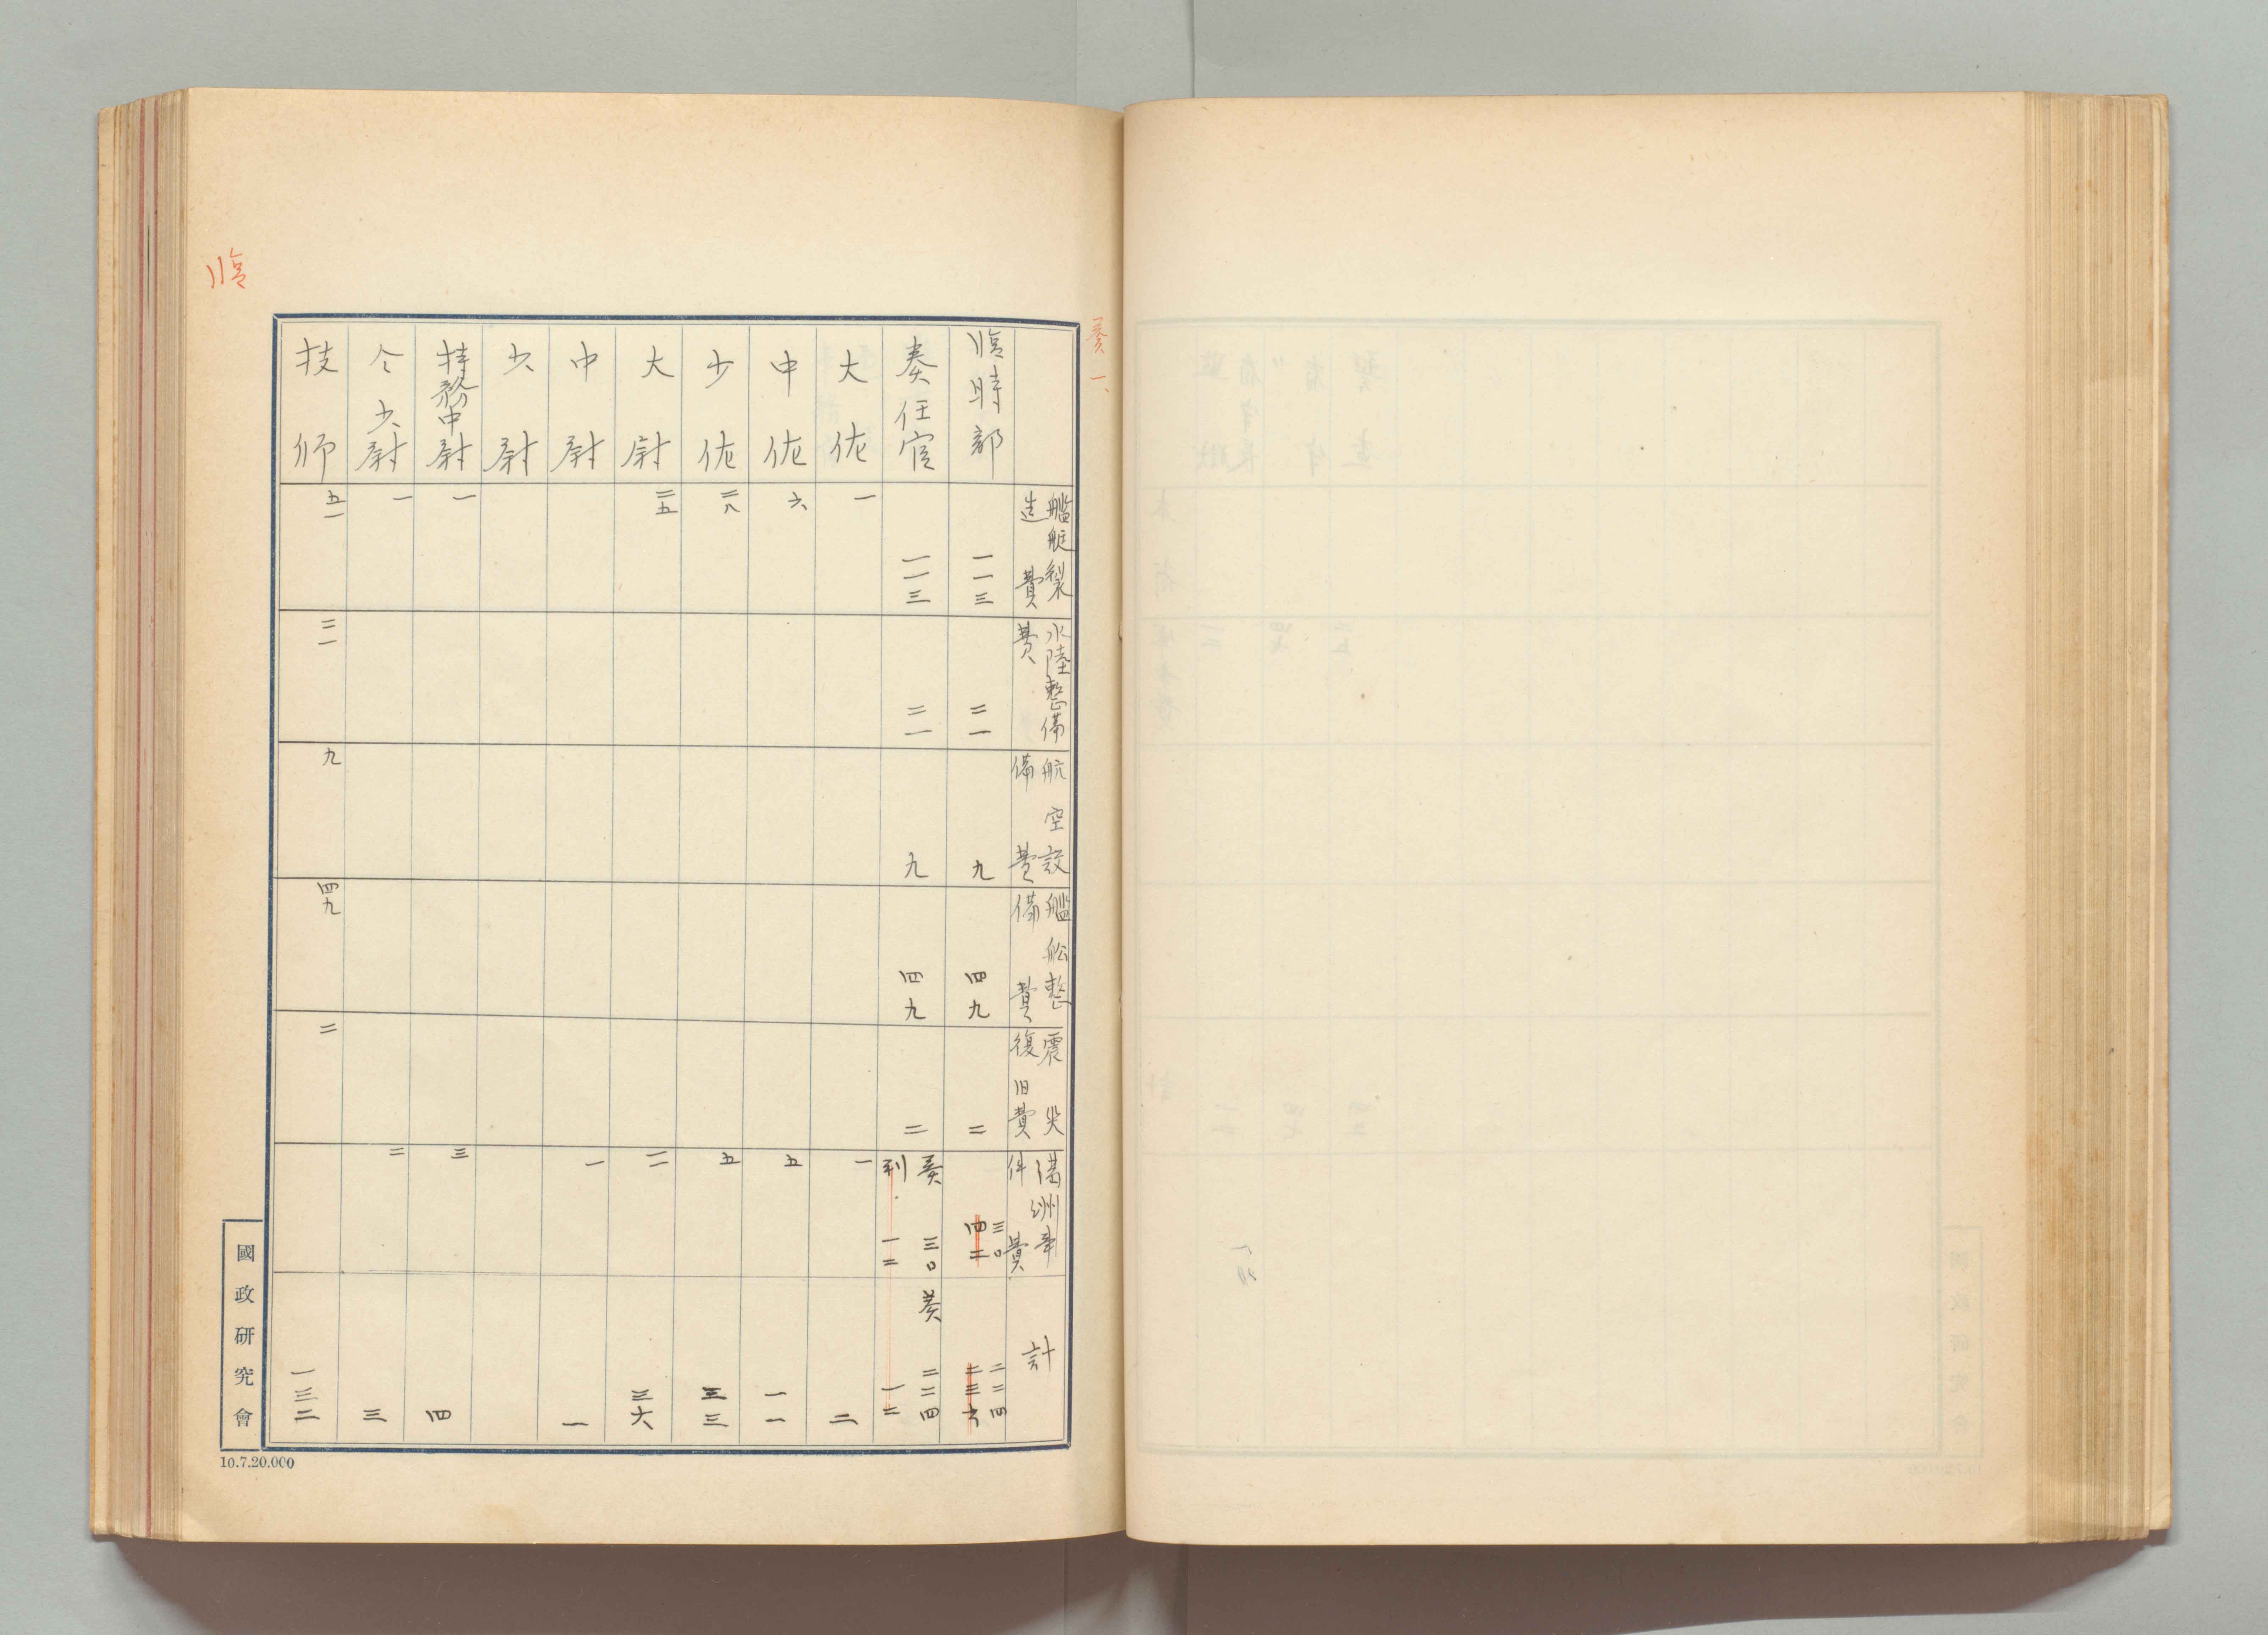 奏一、
艦艇製
造費
水陸整備
費
航空設
備費
艦船整
備費
震災
復旧費
満洲事
件費
計
臨時部
一一三
二一
九
四九
二
三〇
四二
二二四
二三六
奏任官
一一三
二一
九
四九
二
奏 三〇
判 一二
奏 二二四
一二
大佐
一
一
二
中佐
六
五
一一
少佐
二八
五
三三
大尉
二五
一一
三六
中尉
一
一
少尉
特務中尉
一
三
四
仝少尉
一
二
三
技師
五一
二一
九
四九
二
一三二
臨
國政研究會
10.7.20.000